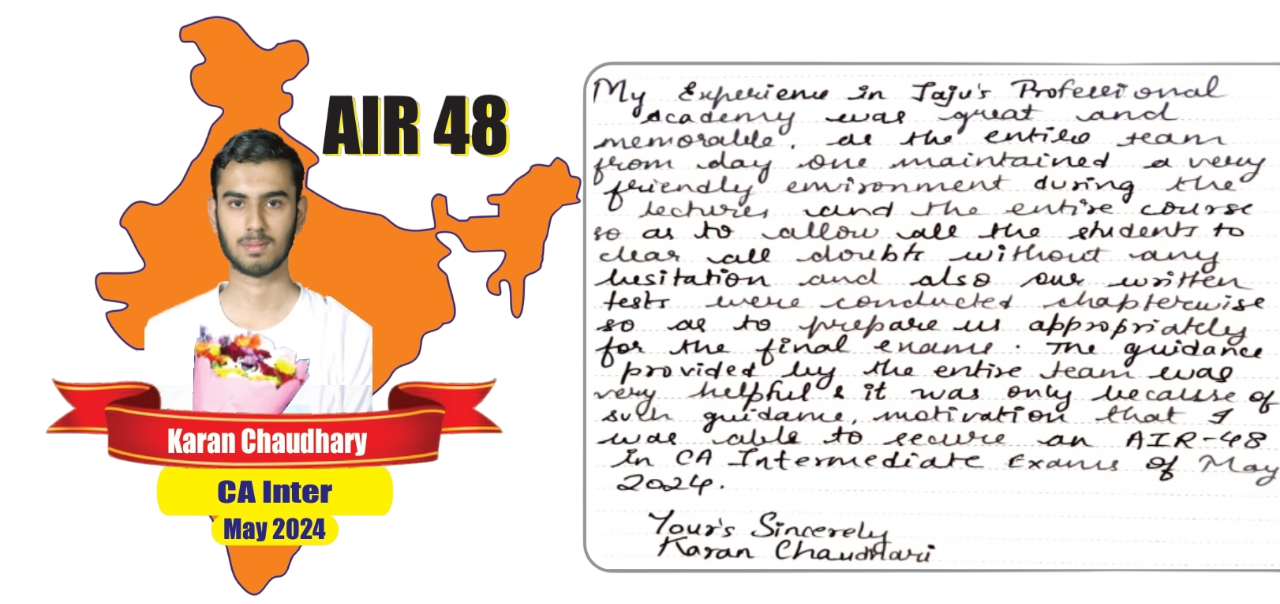 AIR 48
Karan Chaudhary
CA Inter
May 2024
My Experience in Jaju's Professional
academy was great and
memorable, as the entire team
from day one maintained a very
friendly environment during the
lectures and the entire course
so as to allow all the students to
clear all doubts without any
hesitation and also our written
tests were conducted chapterwise
so as to prepare us appropriately
for the final exams. The guidance
provided by the entire team was
very helpful & it was only because of
such guidance, motivation that I
was able to secure an AIR-48
in CA Intermediate Exams of May
2024.
Your's Sincerely
Karan Chaudhari